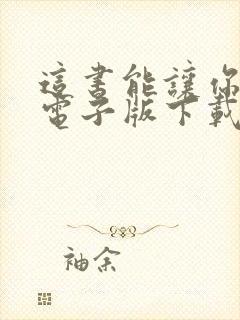 這書能讓你
電子版下載
袖余